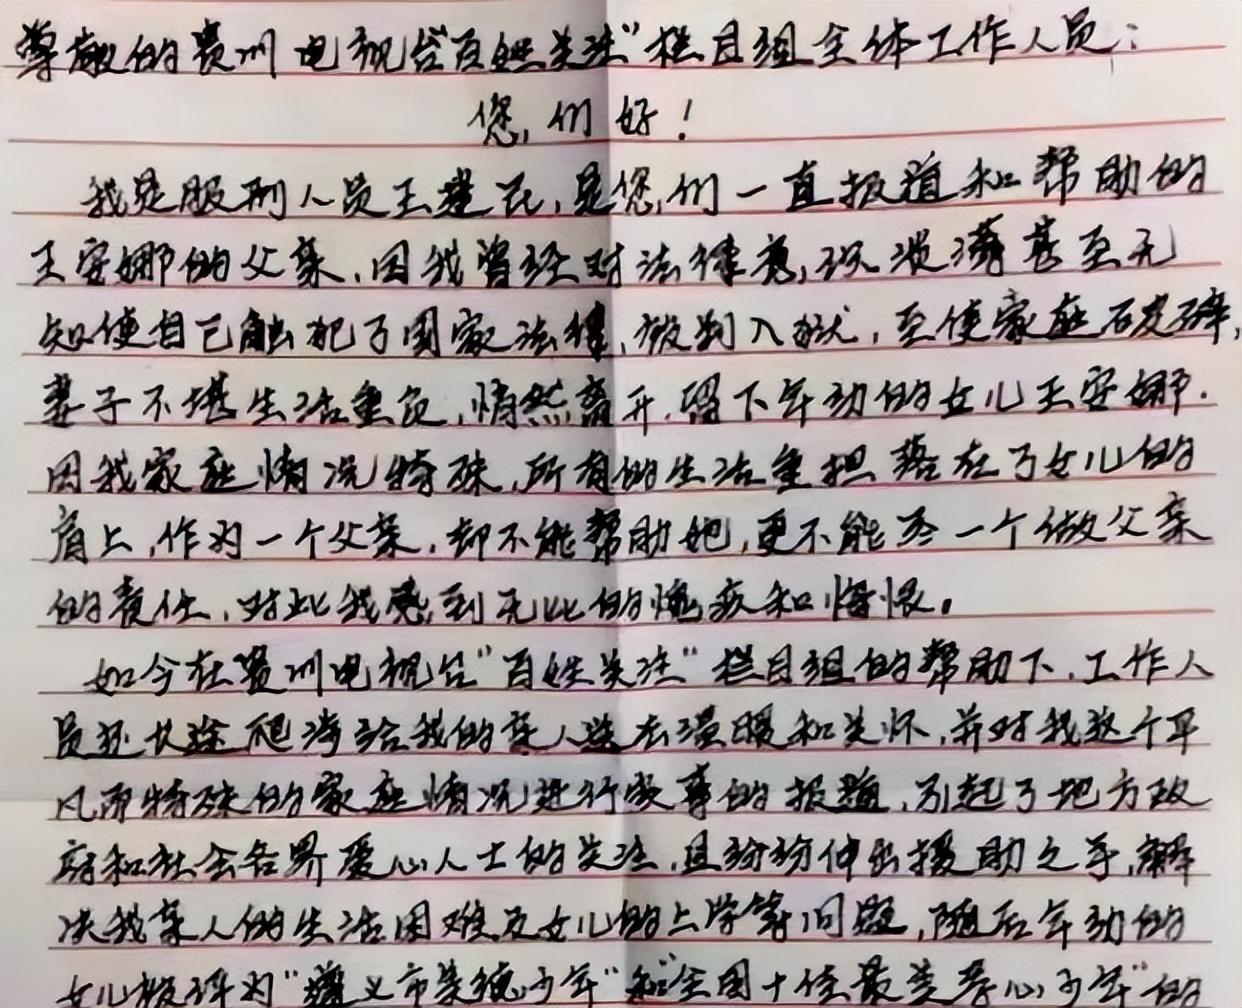 尊敬的贵州电视台"百姓关注"栏目组全体工作人员:
您们好!
我是服刑人员王建飞,是您们一直报道和帮助的
王安娜的父亲,因我曾经对法律意识淡薄甚至无
知使自己触犯了国家法律,被判入狱,至使家庭破碎,
妻子不堪生活重负,悄然离开,留下年幼的女儿王安娜.
因我家庭情况特殊,所有的生活重担落在了女儿的
肩上,作为一个父亲,却不能帮助她,更不能尽一个做父亲
的责任,对此我感到无比的愧疚和悔恨。
如今在贵州电视台"百姓关注"栏目组的帮助下,工作人
员还长途爬涉给我的亲人送去温暖和关怀,并对我这个平
凡而特殊的家庭情况进行实事的报道,引起了地方政
府和社会各界爱心人士的关注,且纷纷伸出援助之手,解
决我亲人的生活困难及女儿的上学等问题,随后年幼的
女儿被评为"遵义市美德少年"和"全国十佳最美孝心少年"的